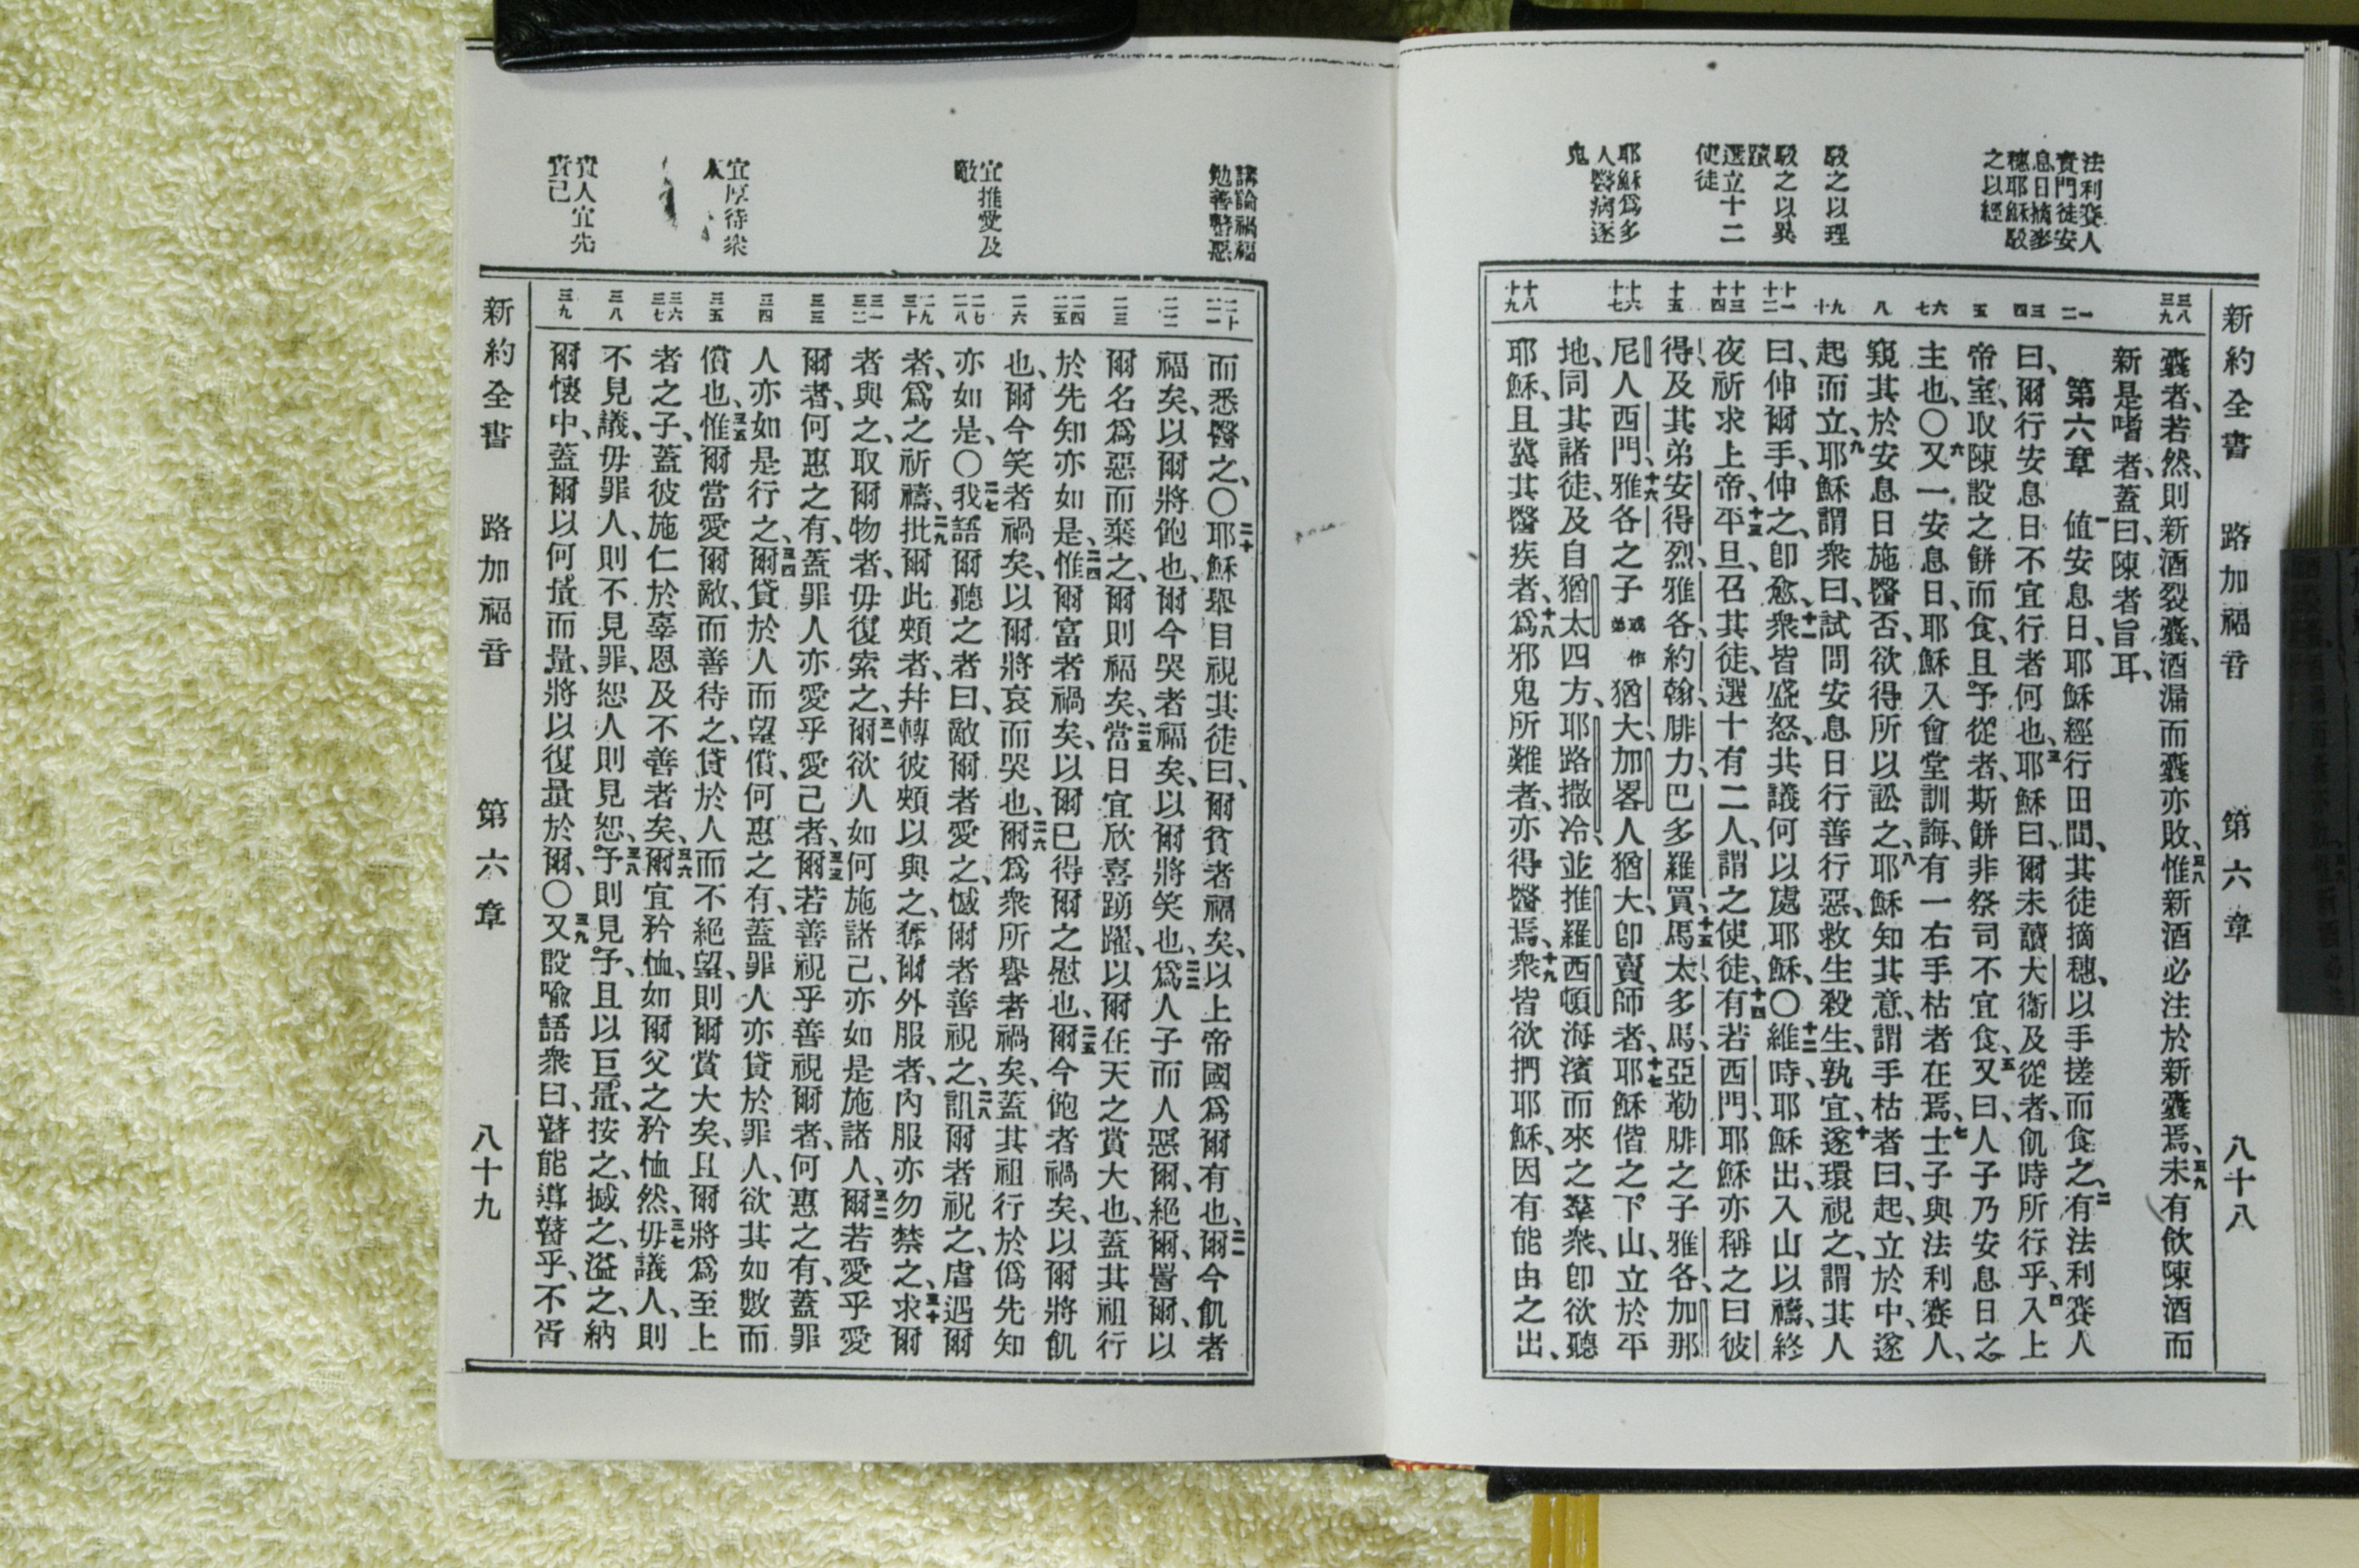 新約全書　路加福音　第六章　八十八
法利賽人
責門徒安
息日摘麥
穗耶穌駁
之以經
駁之以理
駁之以異
蹟
選立十二
使徒
耶穌爲多
人醫病逐
鬼
三八 三九
一 二
三 四
五
六 七
八
九 十
十一 十二
十三 十四
十五
十六 十七
十八 十九
囊者、若然、則新酒裂囊、酒漏而囊亦敗、三八惟新酒必注於新囊焉、三九未有飲陳酒而
新是嗜者、蓋曰、陳者旨耳、
第六章　一値安息日、耶穌經行田間、其徒摘穗、以手搓而食之、二有法利賽人
曰、爾行安息日不宜行者何也、三耶穌曰、爾未讀大衞及從者、飢時所行乎、四入上
帝室、取陳設之餅而食、且予從者、斯餅非祭司不宜食、五又曰、人子乃安息日之
主也、〇六又一安息日、耶穌入會堂訓誨、有一右手枯者在焉、七士子與法利賽人、
窺其於安息日施醫否、欲得所以訟之、八耶穌知其意、謂手枯者曰、起、立於中、遂
起而立、九耶穌謂衆曰、試問安息日行善行惡、救生殺生、孰宜、十遂環視之、謂其人
曰、伸爾手、伸之、卽愈、十一衆皆盛怒、共議何以處耶穌、〇十二維時、耶穌出、入山以禱、終
夜祈求上帝、十三平旦、召其徒、選十有二人、謂之使徒、十四有若西門、耶穌亦稱之曰彼
得、及其弟安得烈、雅各、約翰、腓力、巴多羅買、十五馬太、多馬、亞勒腓之子雅各、加那
尼人西門、十六雅各之子或作弟猶大、加畧人猶大、卽賣師者、十七耶穌偕之下山、立於平
地、同其諸徒、及自猶太四方、耶路撒冷、並推羅西頓海濱而來之羣衆、卽欲聽
耶穌、且冀其醫疾者、十八爲邪鬼所難者、亦得醫焉、十九衆皆欲捫耶穌、因有能由之出、
講論禍福
勉善警惡
宜推愛及
敵
宜厚待衆
人
責人宜先
責己
二十 二一
二二
二三
二四 二五
二六
二七 二八
二九 三十
三一 三二
三三
三四
三五
三六 三七
三八
三九
而悉醫之、〇二十耶穌舉目視其徒曰、爾貧者福矣、以上帝國爲爾有也、二一爾今飢者
福矣、以爾將飽也、爾今哭者福矣、以爾將笑也、二二爲人子而人惡爾、絕爾、詈爾、以
爾名爲惡而棄之、爾則福矣、二三當日宜欣喜踴躍、以爾在天之賞大也、蓋其祖行
於先知亦如是、二四惟爾富者禍矣、以爾已得爾之慰也、二五爾今飽者禍矣、以爾將飢
也、爾今笑者禍矣、以爾將哀而哭也、二六爾爲衆所譽者禍矣、蓋其祖行於僞先知
亦如是、〇二七我語爾聽之者曰、敵爾者愛之、憾爾者善視之、二八詛爾者祝之、虐遇爾
者、爲之祈禱、二九批爾此頰者、幷轉彼頰以與之、奪爾外服者、內服亦勿禁之、三十求爾
者與之、取爾物者、毋復索之、三一爾欲人如何施諸己、亦如是施諸人、三二爾若愛乎愛
爾者、何惠之有、蓋罪人亦愛乎愛己者、三三爾若善視乎善視爾者、何惠之有、蓋罪
人亦如是行之、三四爾貸於人而望償、何惠之有、蓋罪人亦貸於罪人、欲其如數而
償也、三五惟爾當愛爾敵、而善待之、貸於人而不絕望、則爾賞大矣、且爾將爲至上
者之子、蓋彼施仁於辜恩及不善者矣、三六爾宜矜恤、如爾父之矜恤然、三七毋議人、則
不見議、毋罪人、則不見罪、恕人則見恕、三八予則見予、且以巨量、按之、撼之、溢之、納
爾懷中、蓋爾以何量而量、將以復量於爾、〇三九又設喻語衆曰、瞽能導瞽乎、不胥
新約全書　路加福音　第六章　八十九